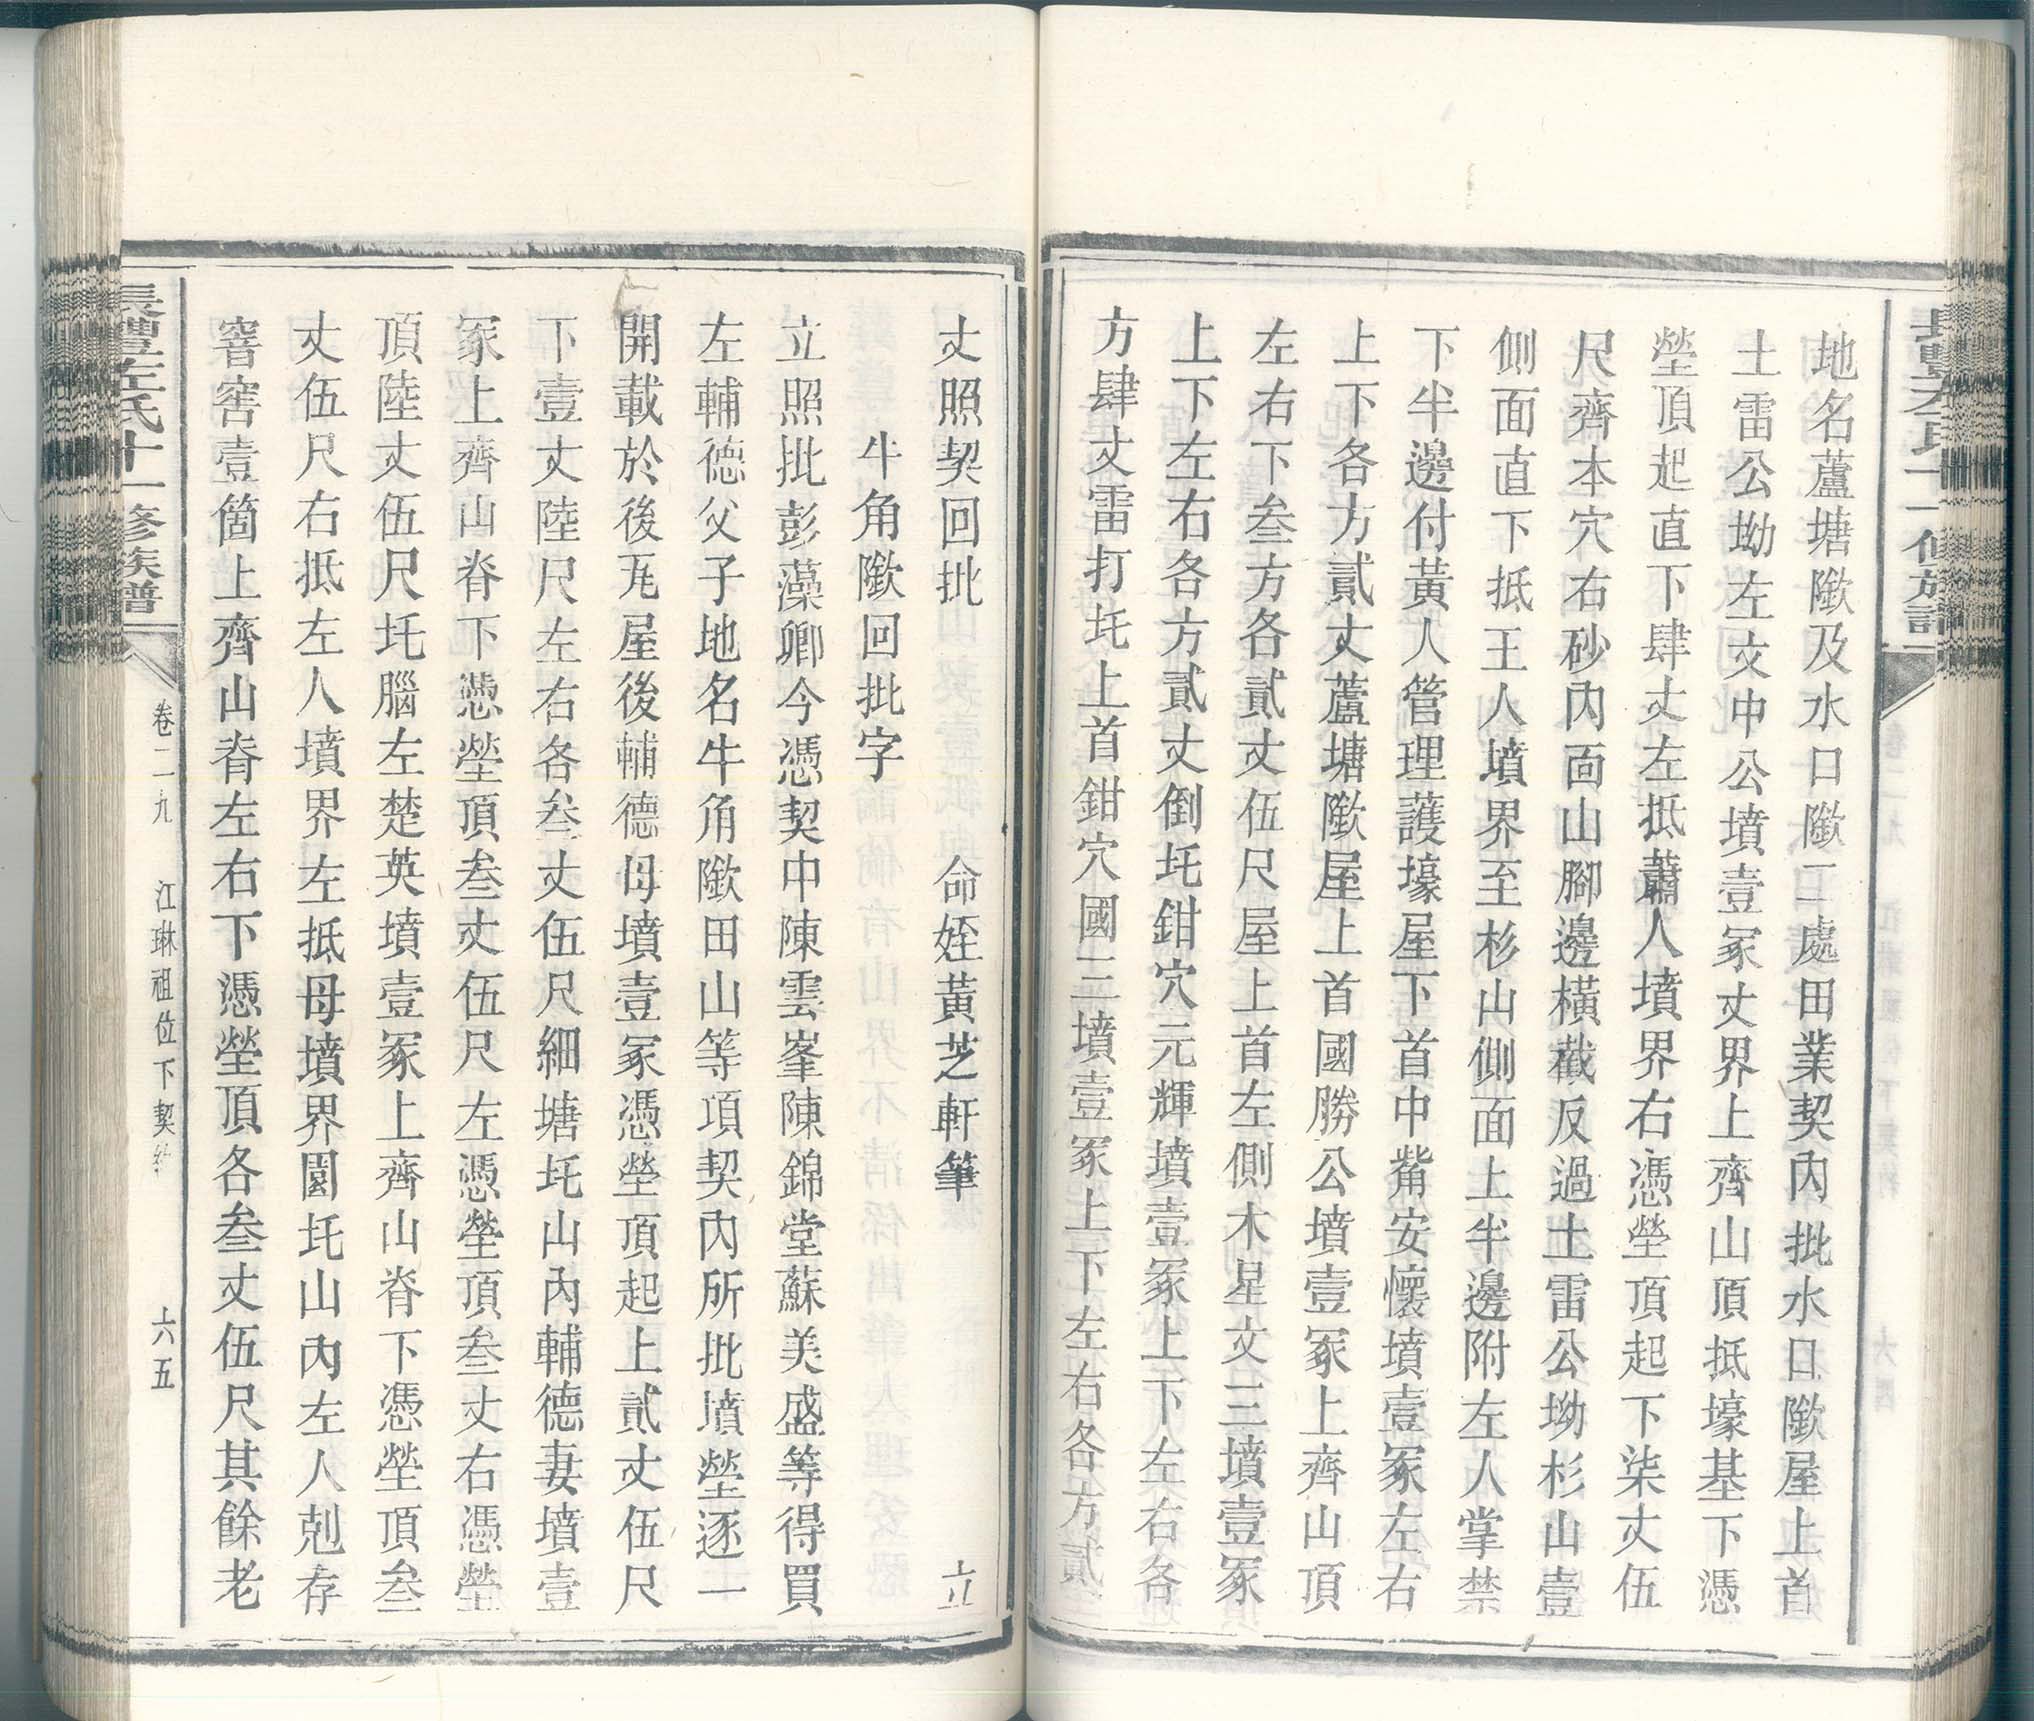 地名蘆塘隞及水口隞二處田業契內批水口隞屋上首
土雷公坳左文中公墳壹冢丈界上齊山頂抵壕基下憑
塋頂起直下肆丈左抵蕭人墳界右憑塋頂起下柒丈伍
尺齊本穴右砂內面山腳邊橫截反過土雷公坳杉山壹
側面直下抵王人墳界至杉山側面上半邊附左人掌禁
下半邊付黃人管理護壕屋下首中觜安懷墳壹冢左右
上下各方貳丈蘆塘隞屋上首國勝公墳壹冢上齊山頂
左右下叁方各貳丈伍尺屋上首左側木星文三墳壹冢
上下左右各方貳丈倒圫鉗穴元輝墳壹冢上下左右各
方肆丈雷打圫上首鉗穴國三墳壹冢上下左右各方貳
丈照契回批 命姪黃芝軒筆 立
牛角隞回批字
立照批彭藻卿今憑契中陳雲峯陳錦堂蘇美盛等得買
左輔德父子地名牛角隞田山等項契內所批墳塋逐一
開載於後瓦屋後輔德母墳壹冢憑塋頂起上貳丈伍尺
下壹丈陸尺左右各叁丈伍尺細塘圫山內輔德妻墳壹
冢上齊山脊下憑塋頂叁丈伍尺左憑塋頂叁丈右憑塋
頂陸丈伍尺圫腦左楚英墳壹冢上齊山脊下憑塋頂叁
丈伍尺右抵左人墳界左抵母墳界園圫山內左人剋存
窨窖壹箇上齊山脊左右下憑塋頂各叁丈伍尺其餘老
長豐左氏十一修族譜
卷二九 江琳祖位下契約 六五